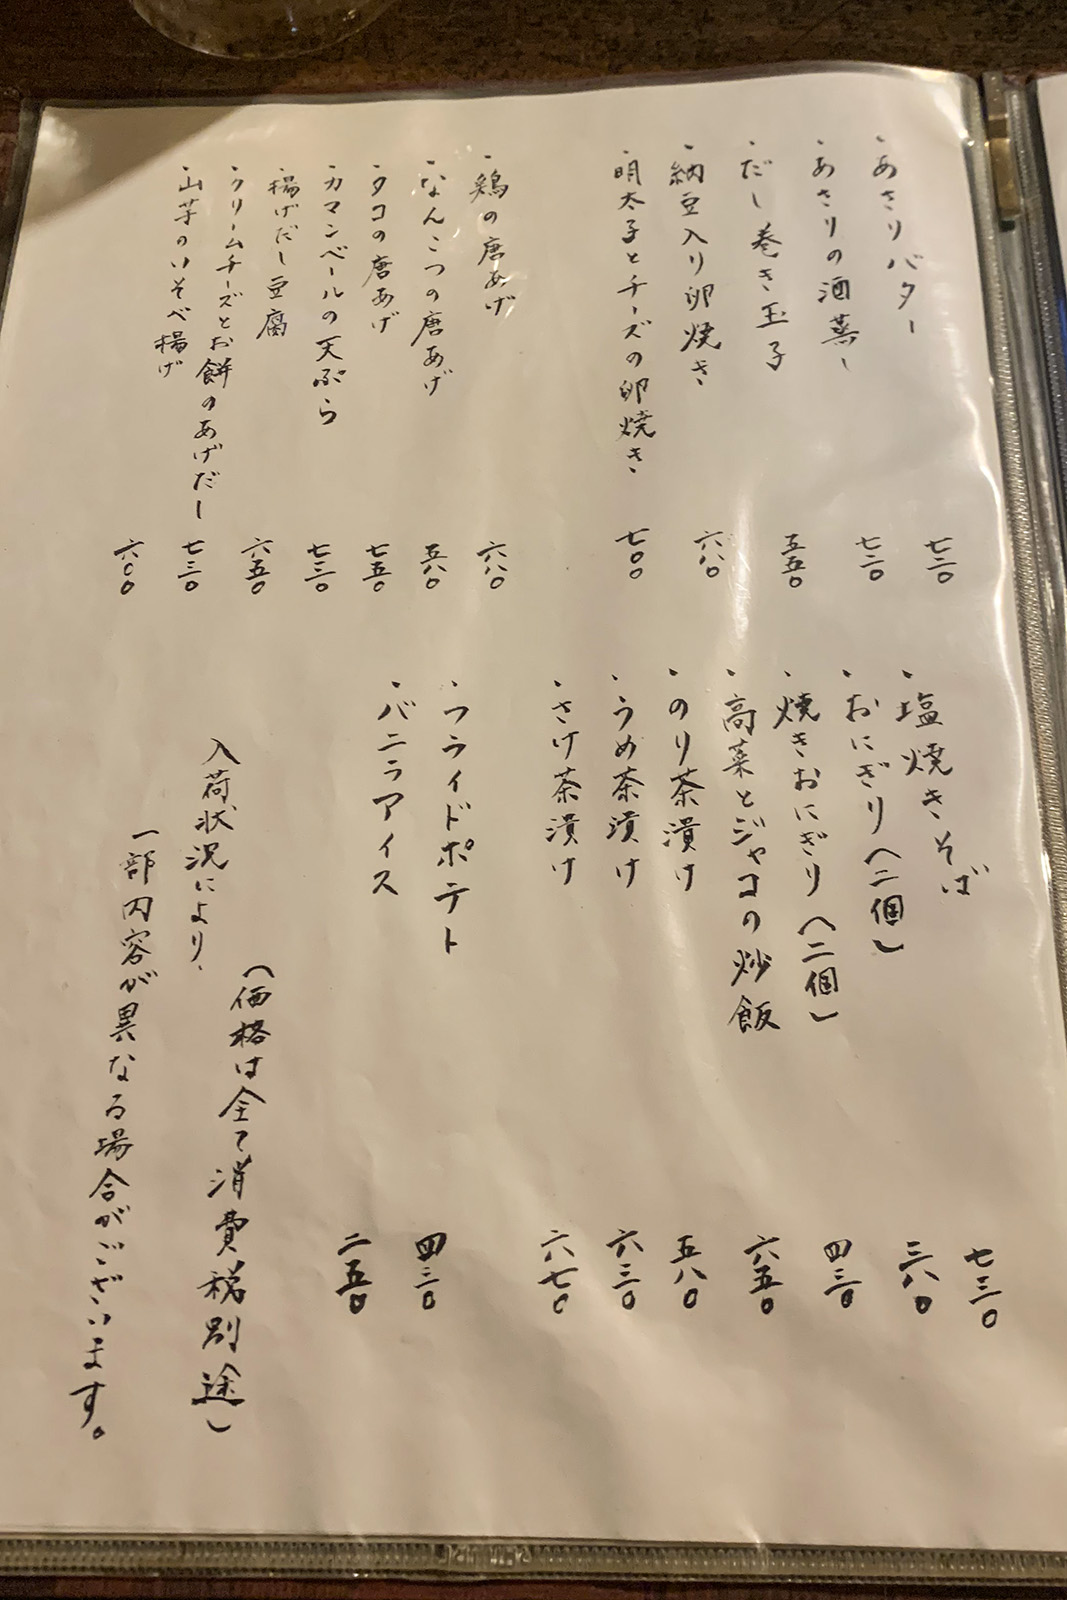 ・あさりバター 七三〇
・あさりの酒蒸し 七三〇
・だし巻き玉子 五五〇
・納豆入り卵焼き 六八〇
・明太子とチーズの卵焼き 七〇〇
・鶏の唐あげ 六八〇
・なんこつの唐あげ 五八〇
・タコの唐あげ 七五〇
・カマンベールの天ぷら 七三〇
・揚げだし豆腐 六五〇
・クリームチーズとお餅のあげだし 七三〇
・山芋のいそべ揚げ 六〇〇
・塩焼きそば 七三〇
・おにぎり(二個) 三八〇
・焼きおにぎり(二個) 四三〇
・高菜とジャコの炒飯 六五〇
・のり茶漬け 五八〇
・うめ茶漬け 六三〇
・さけ茶漬け 六七〇
・フライドポテト 四三〇
・バニラアイス 二五〇
(価格は全て消費税別途)
入荷状況により、
一部内容が異なる場合がございます。